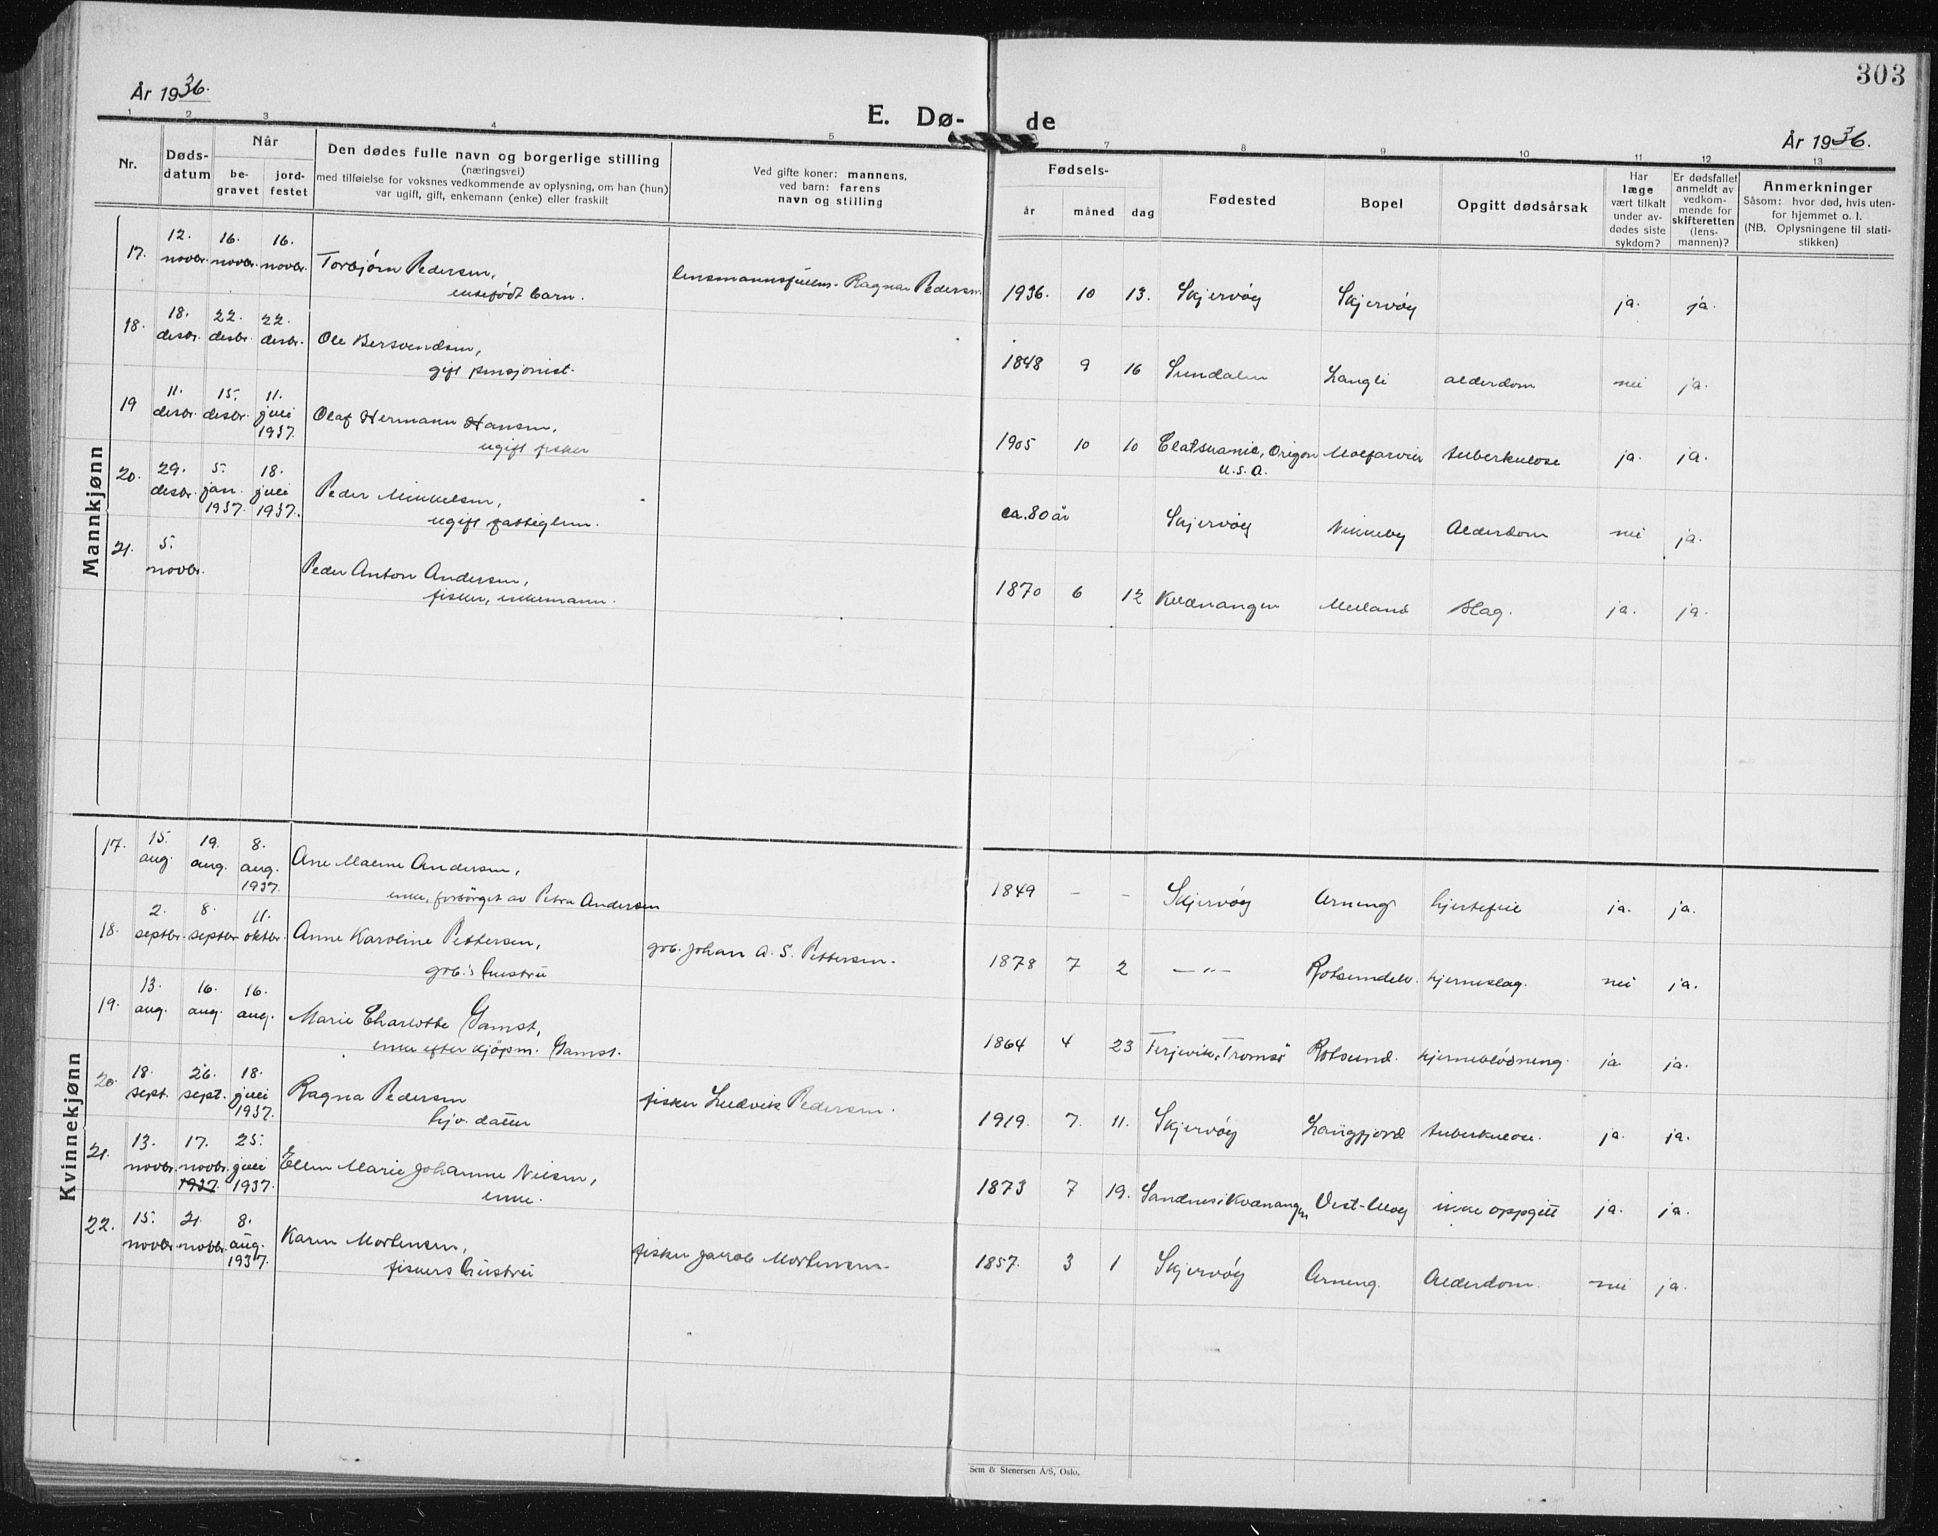 303
År 1936.
E. Dø-
de
År 1936.
1 2 3 4 5 7 8 9 10 11 12 13
Nr.
Døds-
datum
Når
be-
gravet
jord-
festet
Den dødes fulle navn og borgerlige stilling
(næringsvei)
med tilføielse for voksnes vedkommende av oplysning, om han (hun)
var ugift, gift, enkemann (enke) eller fraskilt
Ved gifte koner: mannens,
ved barn: farens
navn og stilling
Fødsels-
år måned dag
Fødested
Bopel
Opgitt dødsårsak
Har
læge
vært tilkalt
under av-
dødes siste
sykdom?
Er dødsfallet
anmeldt av
vedkom-
mende for
skifteretten
(lens-
mannen)?
Anmerkninger
Såsom: hvor død, hvis uten-
for hjemmet o. l.
(NB. Oplysningene til stati-
stikken)
Mannkjønn
17. 12. novbr. 16. novbr. 16. novbr. Torbjørn Pedersen, lensmannsfullm. Ragnar Pedersen 1936. 10 13. Skjervøy Skjervøy ja. ja.
ektefødt barn.
18. 18. desbr. 22. desbr. 22. desbr. Ole Bersvendsen, 1848 9 16 Sundalen Langli alderdom nei ja.
gift pensjonist.
19 11. desbr. 15. desbr. 11. juli 1937. Olaf Hermann Hansen, 1905 10 10 Clatskanie, Origon U.S.A. tuberkulose ja. ja.
ugift fisker
20. 29. desbr. 5. jan. 1937. 18. juli 1937. Peder Mikkelsen, ca. 80 år Skjervøy Nikkeby Alderdom nei ja.
ugift fattiglem.
21. 5. novbr. Peder Anton Andersen, 1870 6 12 Kvænangen Meiland slag. ja. ja.
fisker, enkemann.
Kvinnekjønn
17. 15. aug. 19. aug. 8. aug. 1937. Ane Malene Andersen, 1849 - - Skjervøy Arnøng hjertefeil ja. ja.
enke, forsørget av Petra Andersen
18. 2. septbr. 8. septbr. 11. oktbr. Anne Karoline Pettersen, grb. Johan A. S. Pettersen. 1878 7 2 —"— Rotsundelv. hjerneslag. nei ja.
grb.s hustru
19. 13. aug. 16. aug. 16. aug. Marie Charlotte Gamst, 1864 4 23 Terjevik, Tromsø Rotsund. hjerneblødning. ja ja.
enke efter kjøpm. Gamst.
20. 18. sept. 26. sept. 18. juli 1937. Ragna Pedersen fisker Ludvik Pedersen. 1919. 7. 11. Skjervøy Langfjord tuberkulose. ja. ja.
hjv. datter
21. 13. novbr. 17. novbr. 1937. 25. juli 1937. Ellen Marie Johanne Nilsen, 1873 7 19. Sandnes i Kvænangen ikke oppgitt ja. ja.
enke.
22. 15. novbr. 21. novbr. 8. aug. 1937. Karen Mortensen, fisker Jakob Mortensen. 1857. 3 1 Skjervøy Arnøng. Alderdom. nei ja.
fiskers hustru
Sem & Stenersen A/S, Oslo.